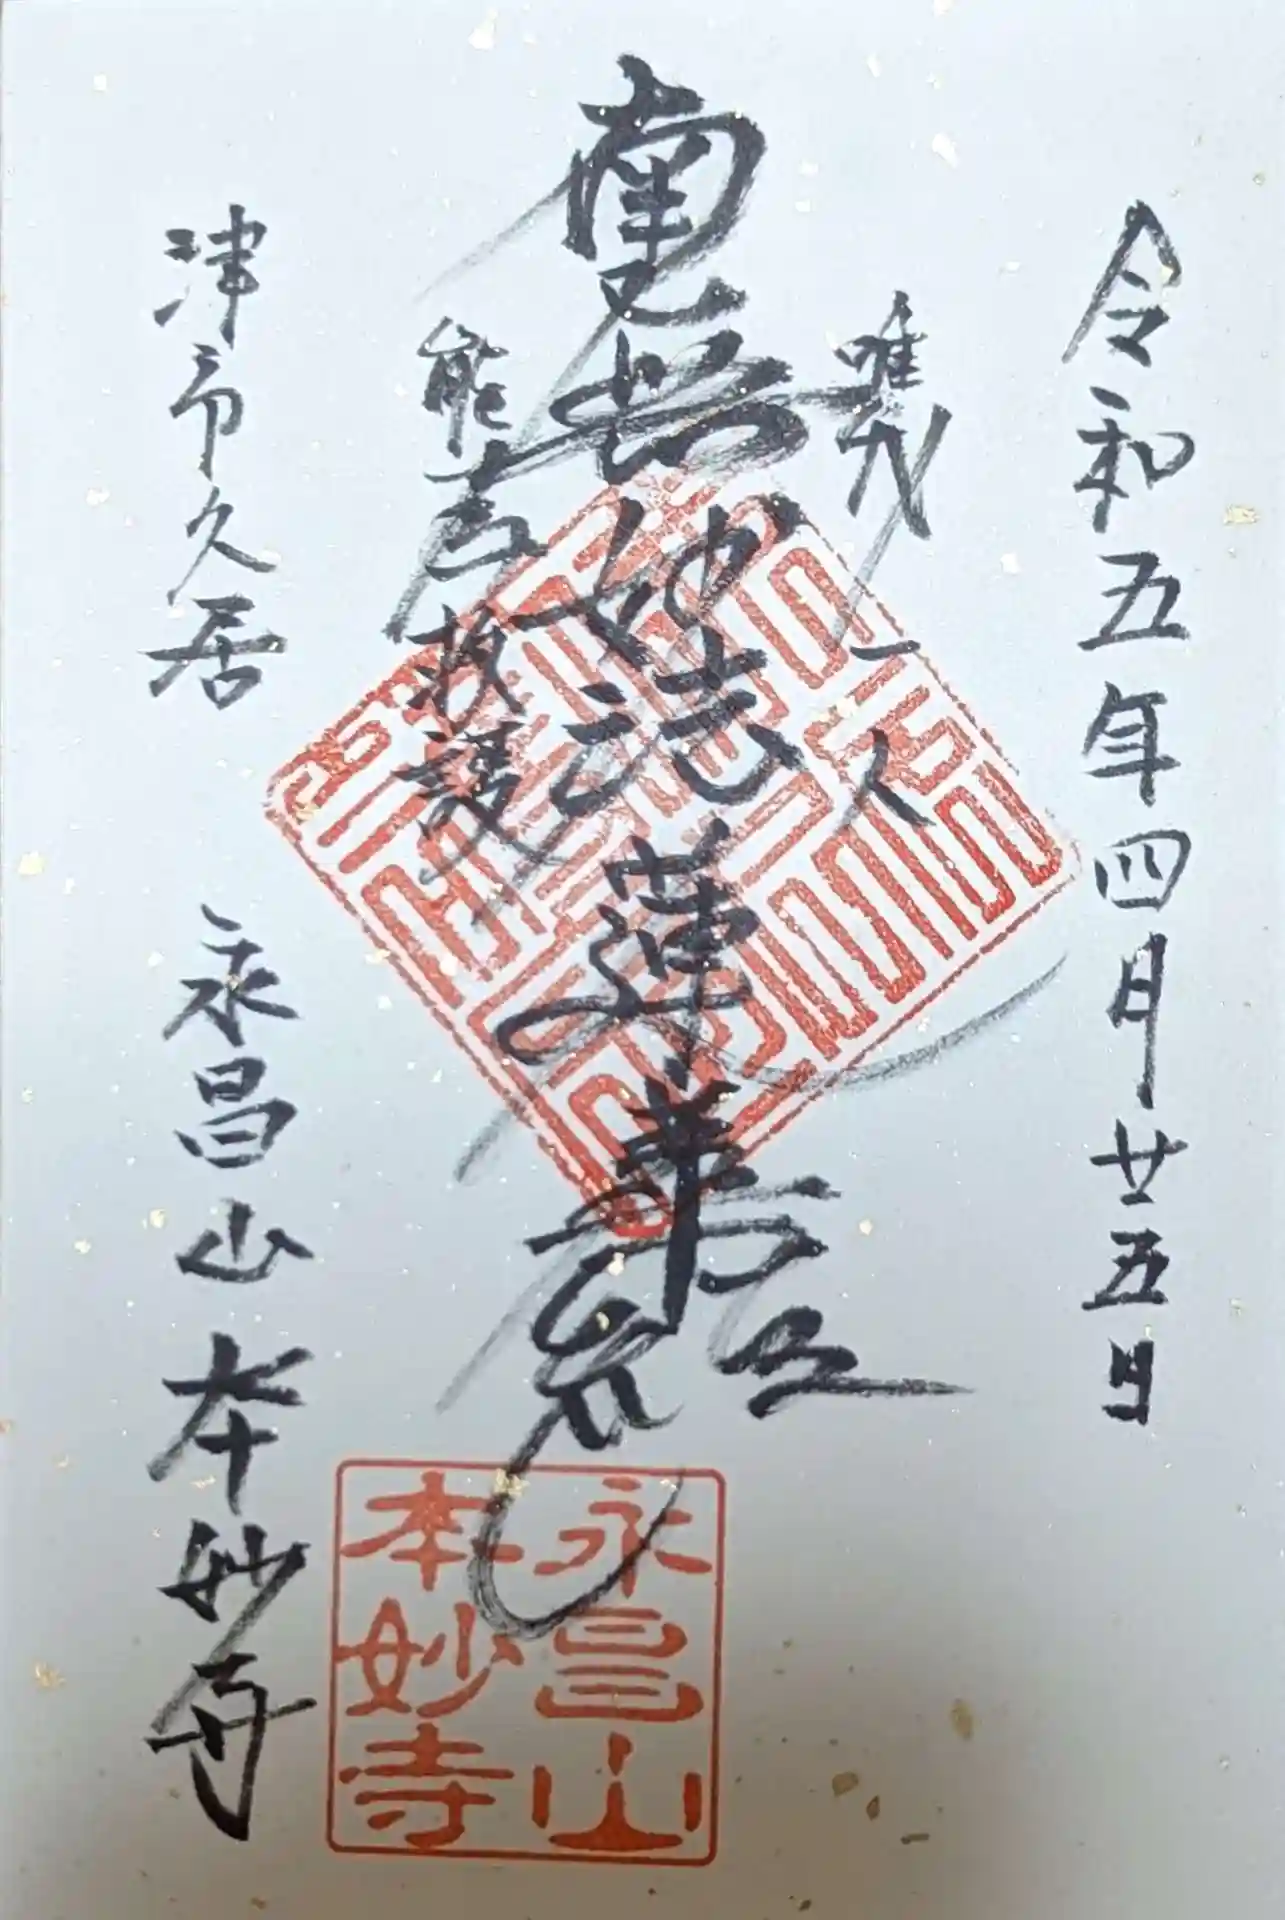 令和五年四月廿五日
唯我一人
南無妙法蓮華経
能為救護
津市久居 永昌山本妙寺
永昌山
本妙寺